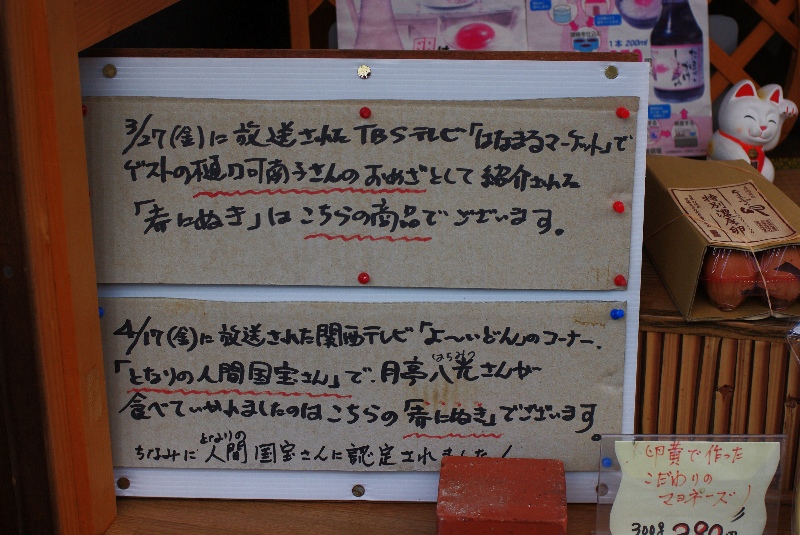 3/27(金)に放送されたTBSテレビ「はなまるマーケット」で
ゲストの樋口可南子さんのおめざとして紹介された
「寿にぬき」はこちらの商品でございます。
4/17(金)に放送された関西テレビ「よ〜いどん」のコーナー、
「となりの人間国宝さん」で、月亭八光さんが
はちみつ
食べていかれましたのはこちらの「寿にぬき」でございます。
となりの
ちなみに人間国宝さんに認定されました!
1本 200ml
卵
特別濃厚卵
卵黄で作った
こだわりの
マヨネーズ!
300g 390円